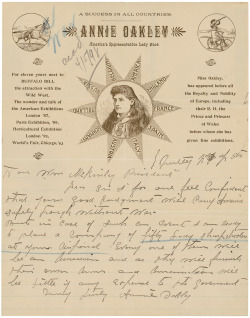 A SUCCESS IN ALL COUNTRIES.
ANNIE OAKLEY
America's Representative Lady Shot
For eleven years next to
BUFFALO BILL
the attraction with the
Wild West.
The wonder and talk of
the American Exhibition
London '87,
Paris Exhibition, '89,
Horticultural Exhibition
London '92,
World's Fair, Chicago '93
Miss Oakley,
has appeared before all
the Royalty and Nobility
of Europe, including
their R. H. the
Prince and Princess
of Wales
before whom she has
given five exhibitions.
FRANCE
Hon Wm McKinley President
Dear Sir I for one feel Confident
that your good judgment will carry America
safely through without War
But in case of such an event I am ready
to place a Company of fifty lady sharpshooters
at your disposal Every one of them will
be an American and as they will furnish
their own Arms and Ammunition will
be little if any expense to the government
Very truly Annie Oakley